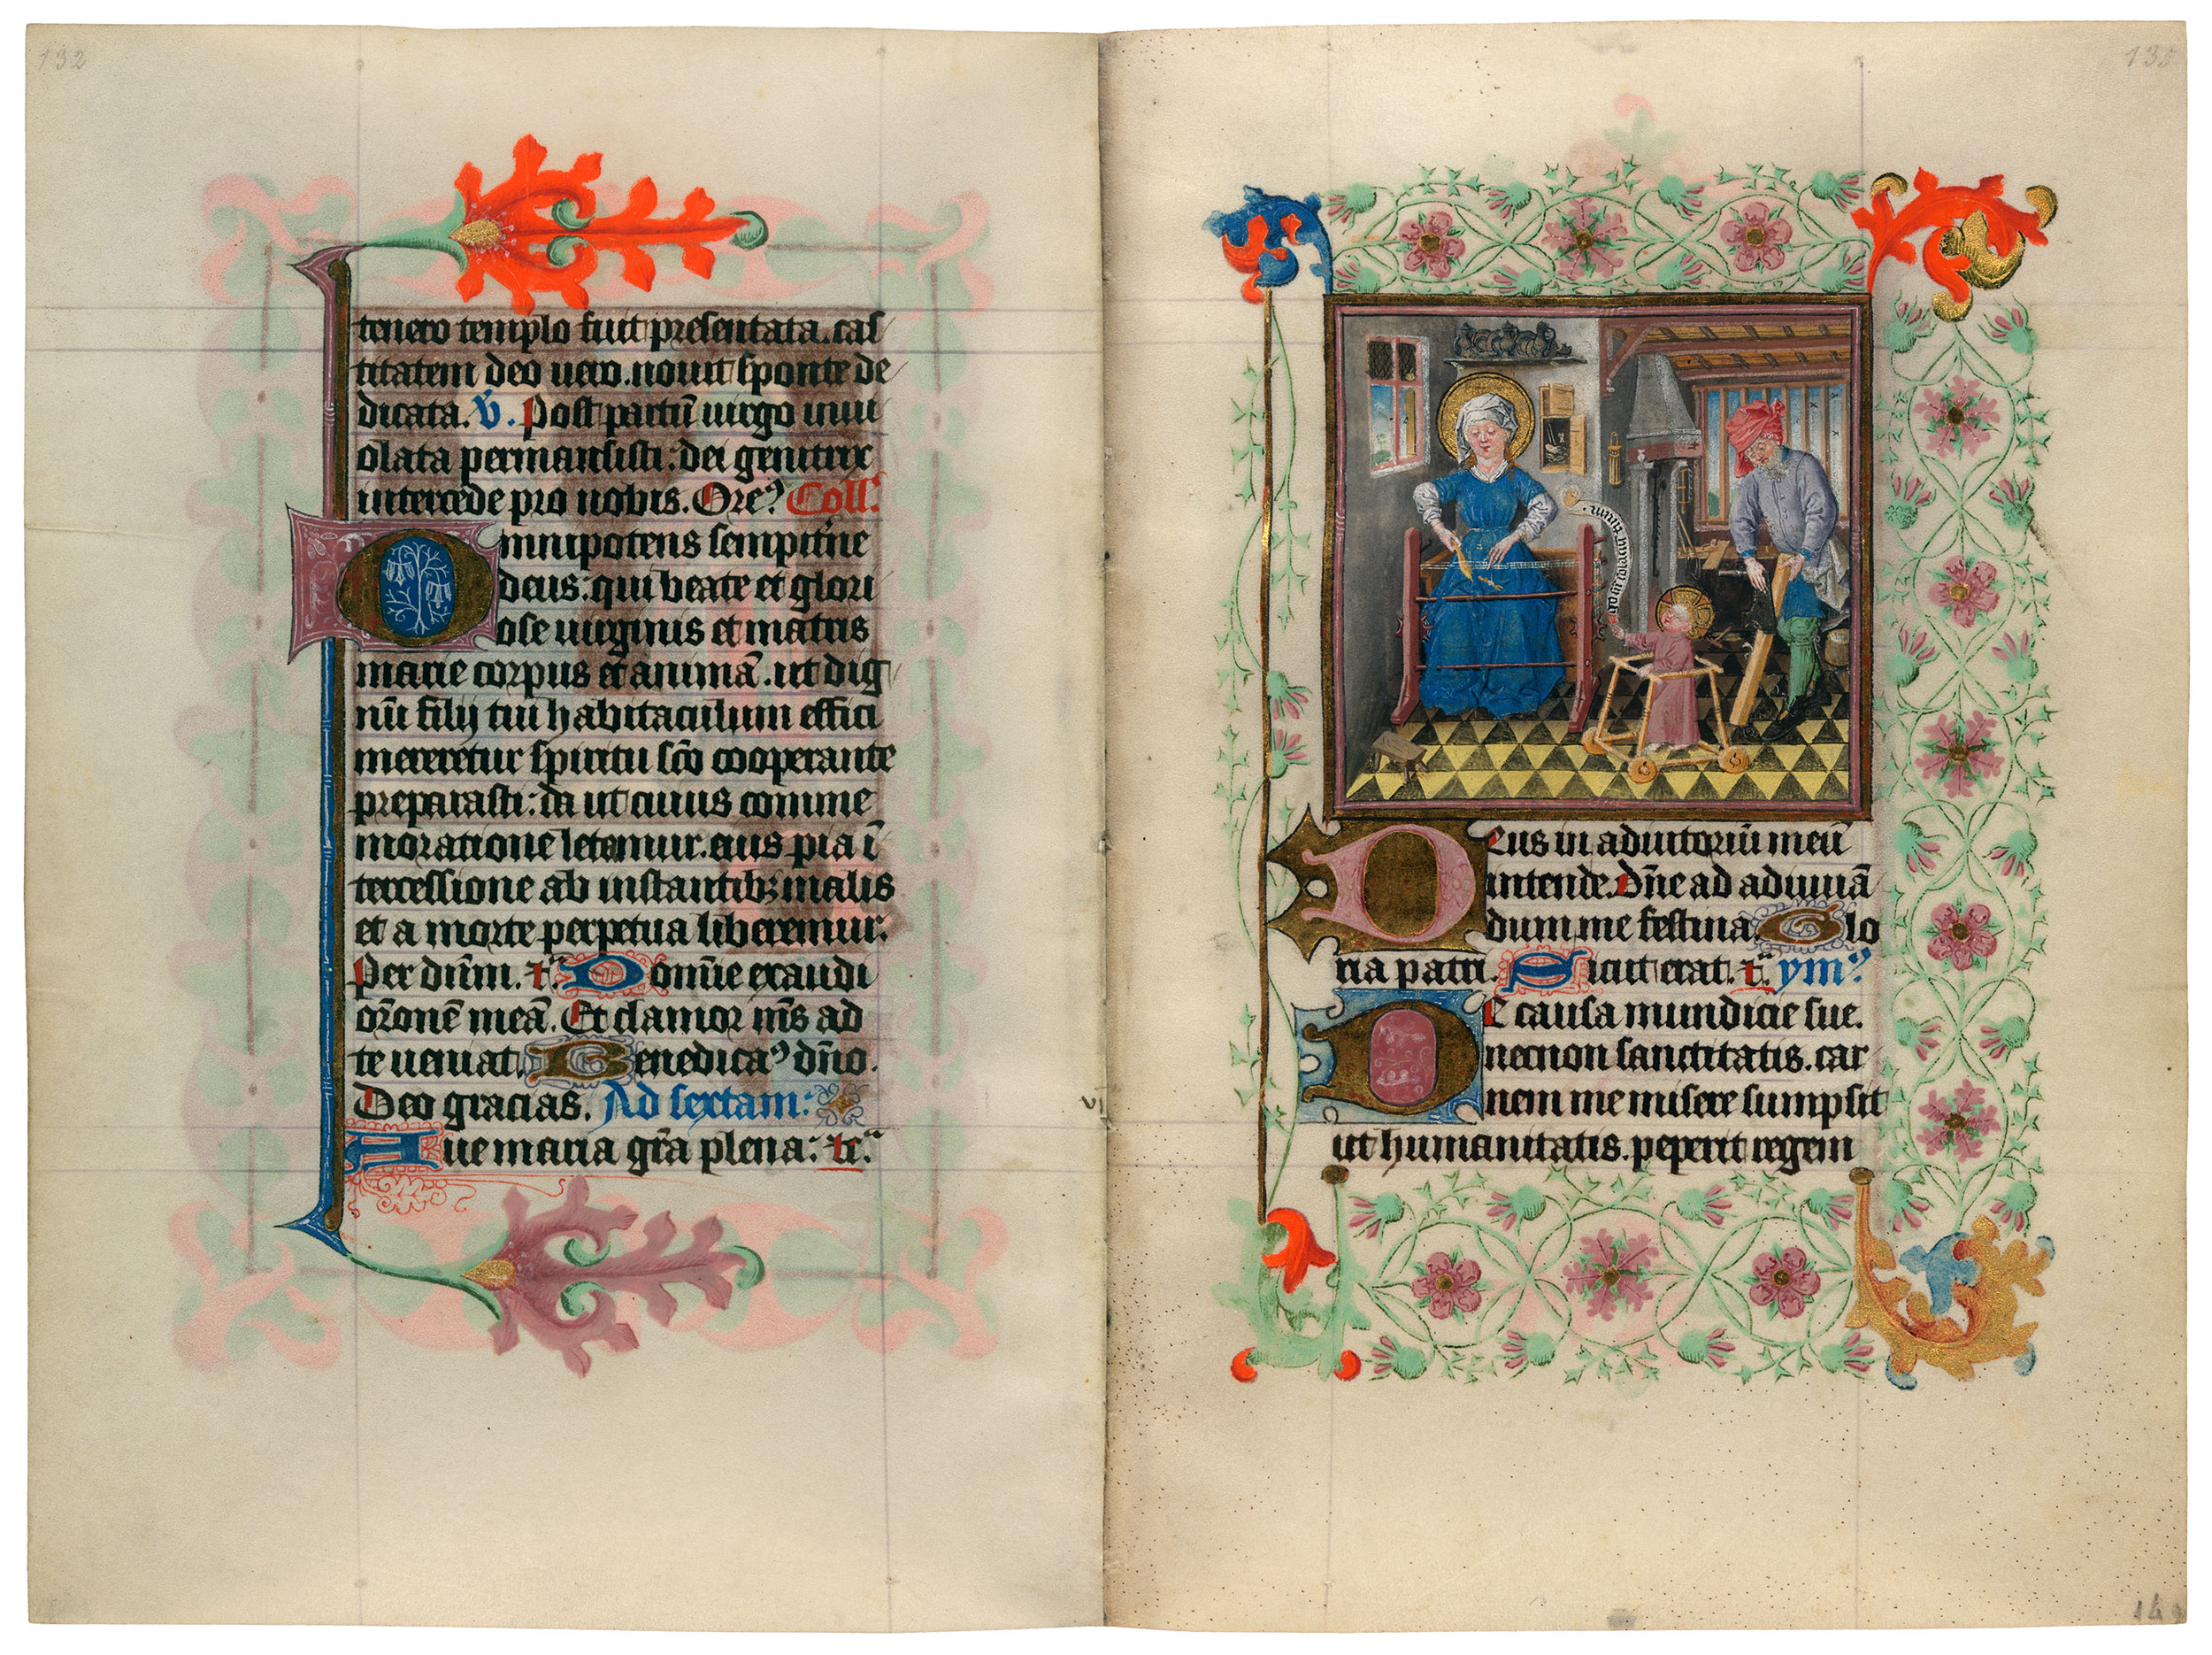 132
tenero templo fuit presentata. cas
titatem deo uero. nouit sponte de
dicata. V̉. Post partū uirgo inui
olata permansisti: dei genitrix
intercede pro nobis. Orem⁹ Coll.
Omnipotens sempit'ne
deus: qui beate et glori
ose uirginis et matris
marie corpus et animā. ut dig
nū filij tui habitaculum effici
mereretur spiritu scō cooperante
preparasti: da ut cuius comme
moratione letamur. eius pia ī
tercessione ab instantibꝫ malis
et a morte perpetua liberemur.
Per dn̄m. ꝛc̄. Domīe exaudi
or̄onē meā. Et clamor m̄s ad
te ueniat. Benedicam⁹ dn̄o.
Deo gracias. Ad sextam:
Aue maria gr̄a plena: ꝛc̄.
135
ad m̄r̄e
Deus in adiutoriū meū
intende. Dn̄e ad adiuuā
dum me festina. Glo
ria patri. Sicut erat. ꝛc̄. ym⁹
De causa mundicie sue.
necnon sanctitatis. car
nem me misere sumpsit
ut humanitatis. peperit regem